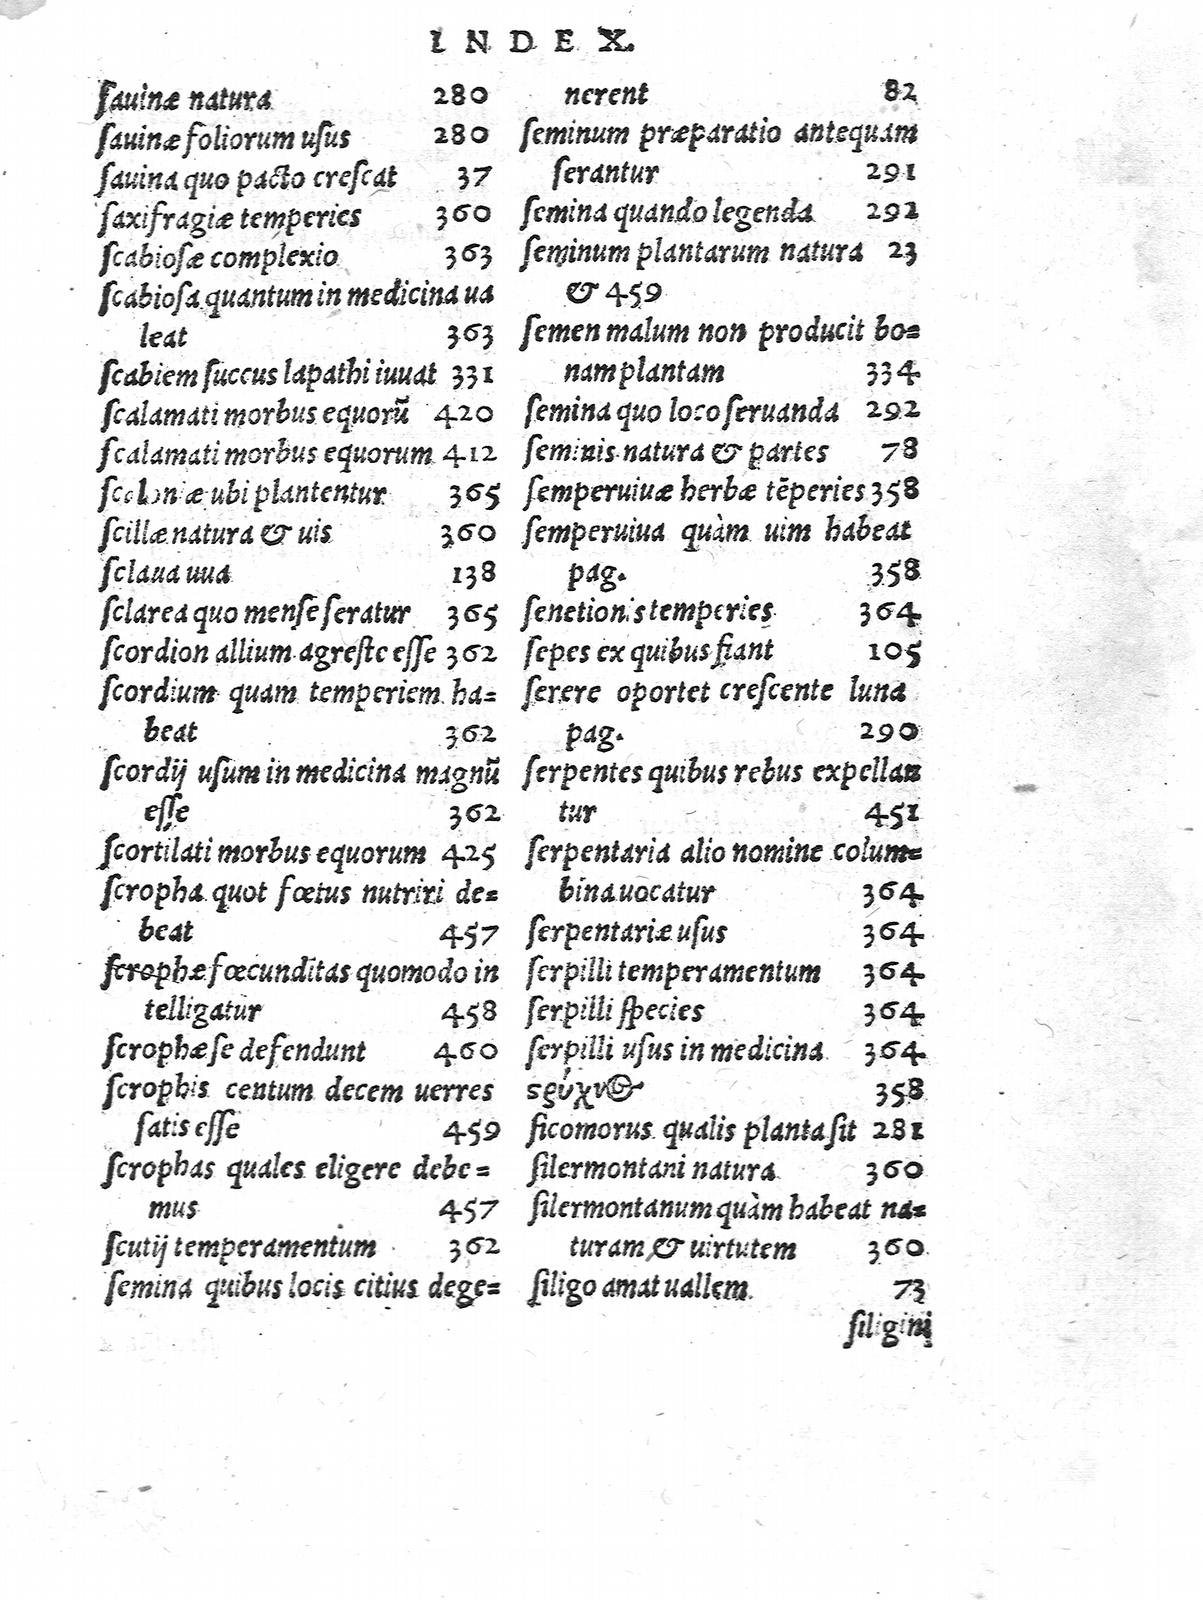 INDEX.
ſauinæ natura 280
ſauinæ foliorum uſus 280
ſauina quo pacto creſcat 37
ſaxifragiæ temperies 360
ſcabioſæ complexio 363
ſcabioſa quantum in medicina ua
leat 363
ſcabiem ſuccus lapathi iuuat 331
ſcalamati morbus equorũ 420
ſcalamati morbus equorum 412
ſcaloniæ ubi plantentur 365
ſcillæ natura & uis 360
ſclaua uua 138
ſclarea quo menſe ſeratur 365
ſcordion allium agreſte eſſe 362
ſcordium quam temperiem ha=
beat 362
ſcordij uſum in medicina magnũ
eſſe 362
ſcortilati morbus equorum 425
ſcropha quot fœtus nutriri de=
beat 457
ſcrophæ fœcunditas quomodo in
telligatur 458
ſcrophæ ſe defendunt 460
ſcrophis centum decem uerres
ſatis eſſe 459
ſcrophas quales eligere debe=
mus 457
ſcutij temperamentum 362
ſemina quibus locis citius dege=
nerent 82
ſeminum præparatio antequam
ſerantur 291
ſemina quando legenda 292
ſeminum plantarum natura 23
& 459
ſemen malum non producit bo=
nam plantam 334
ſemina quo loco ſeruanda 292
ſeminis natura & partes 78
ſemperuiuæ herbæ tẽperies 358
ſemperuiua quàm uim habeat
pag. 358
ſenetionis temperies 364
ſepes ex quibus fiant 105
ſerere oportet creſcente luna
pag. 290
ſerpentes quibus rebus expellan
tur 451
ſerpentaria alio nomine colum=
bina uocatur 364
ſerpentariæ uſus 364
ſerpilli temperamentum 364
ſerpilli ſpecies 364
ſerpilli uſus in medicina 364
358
ſicomorus qualis planta ſit 281
ſilermontani natura 360
ſilermontanum quàm habeat na=
turam & uirtutem 360
ſiligo amat uallem 73
ſiligini